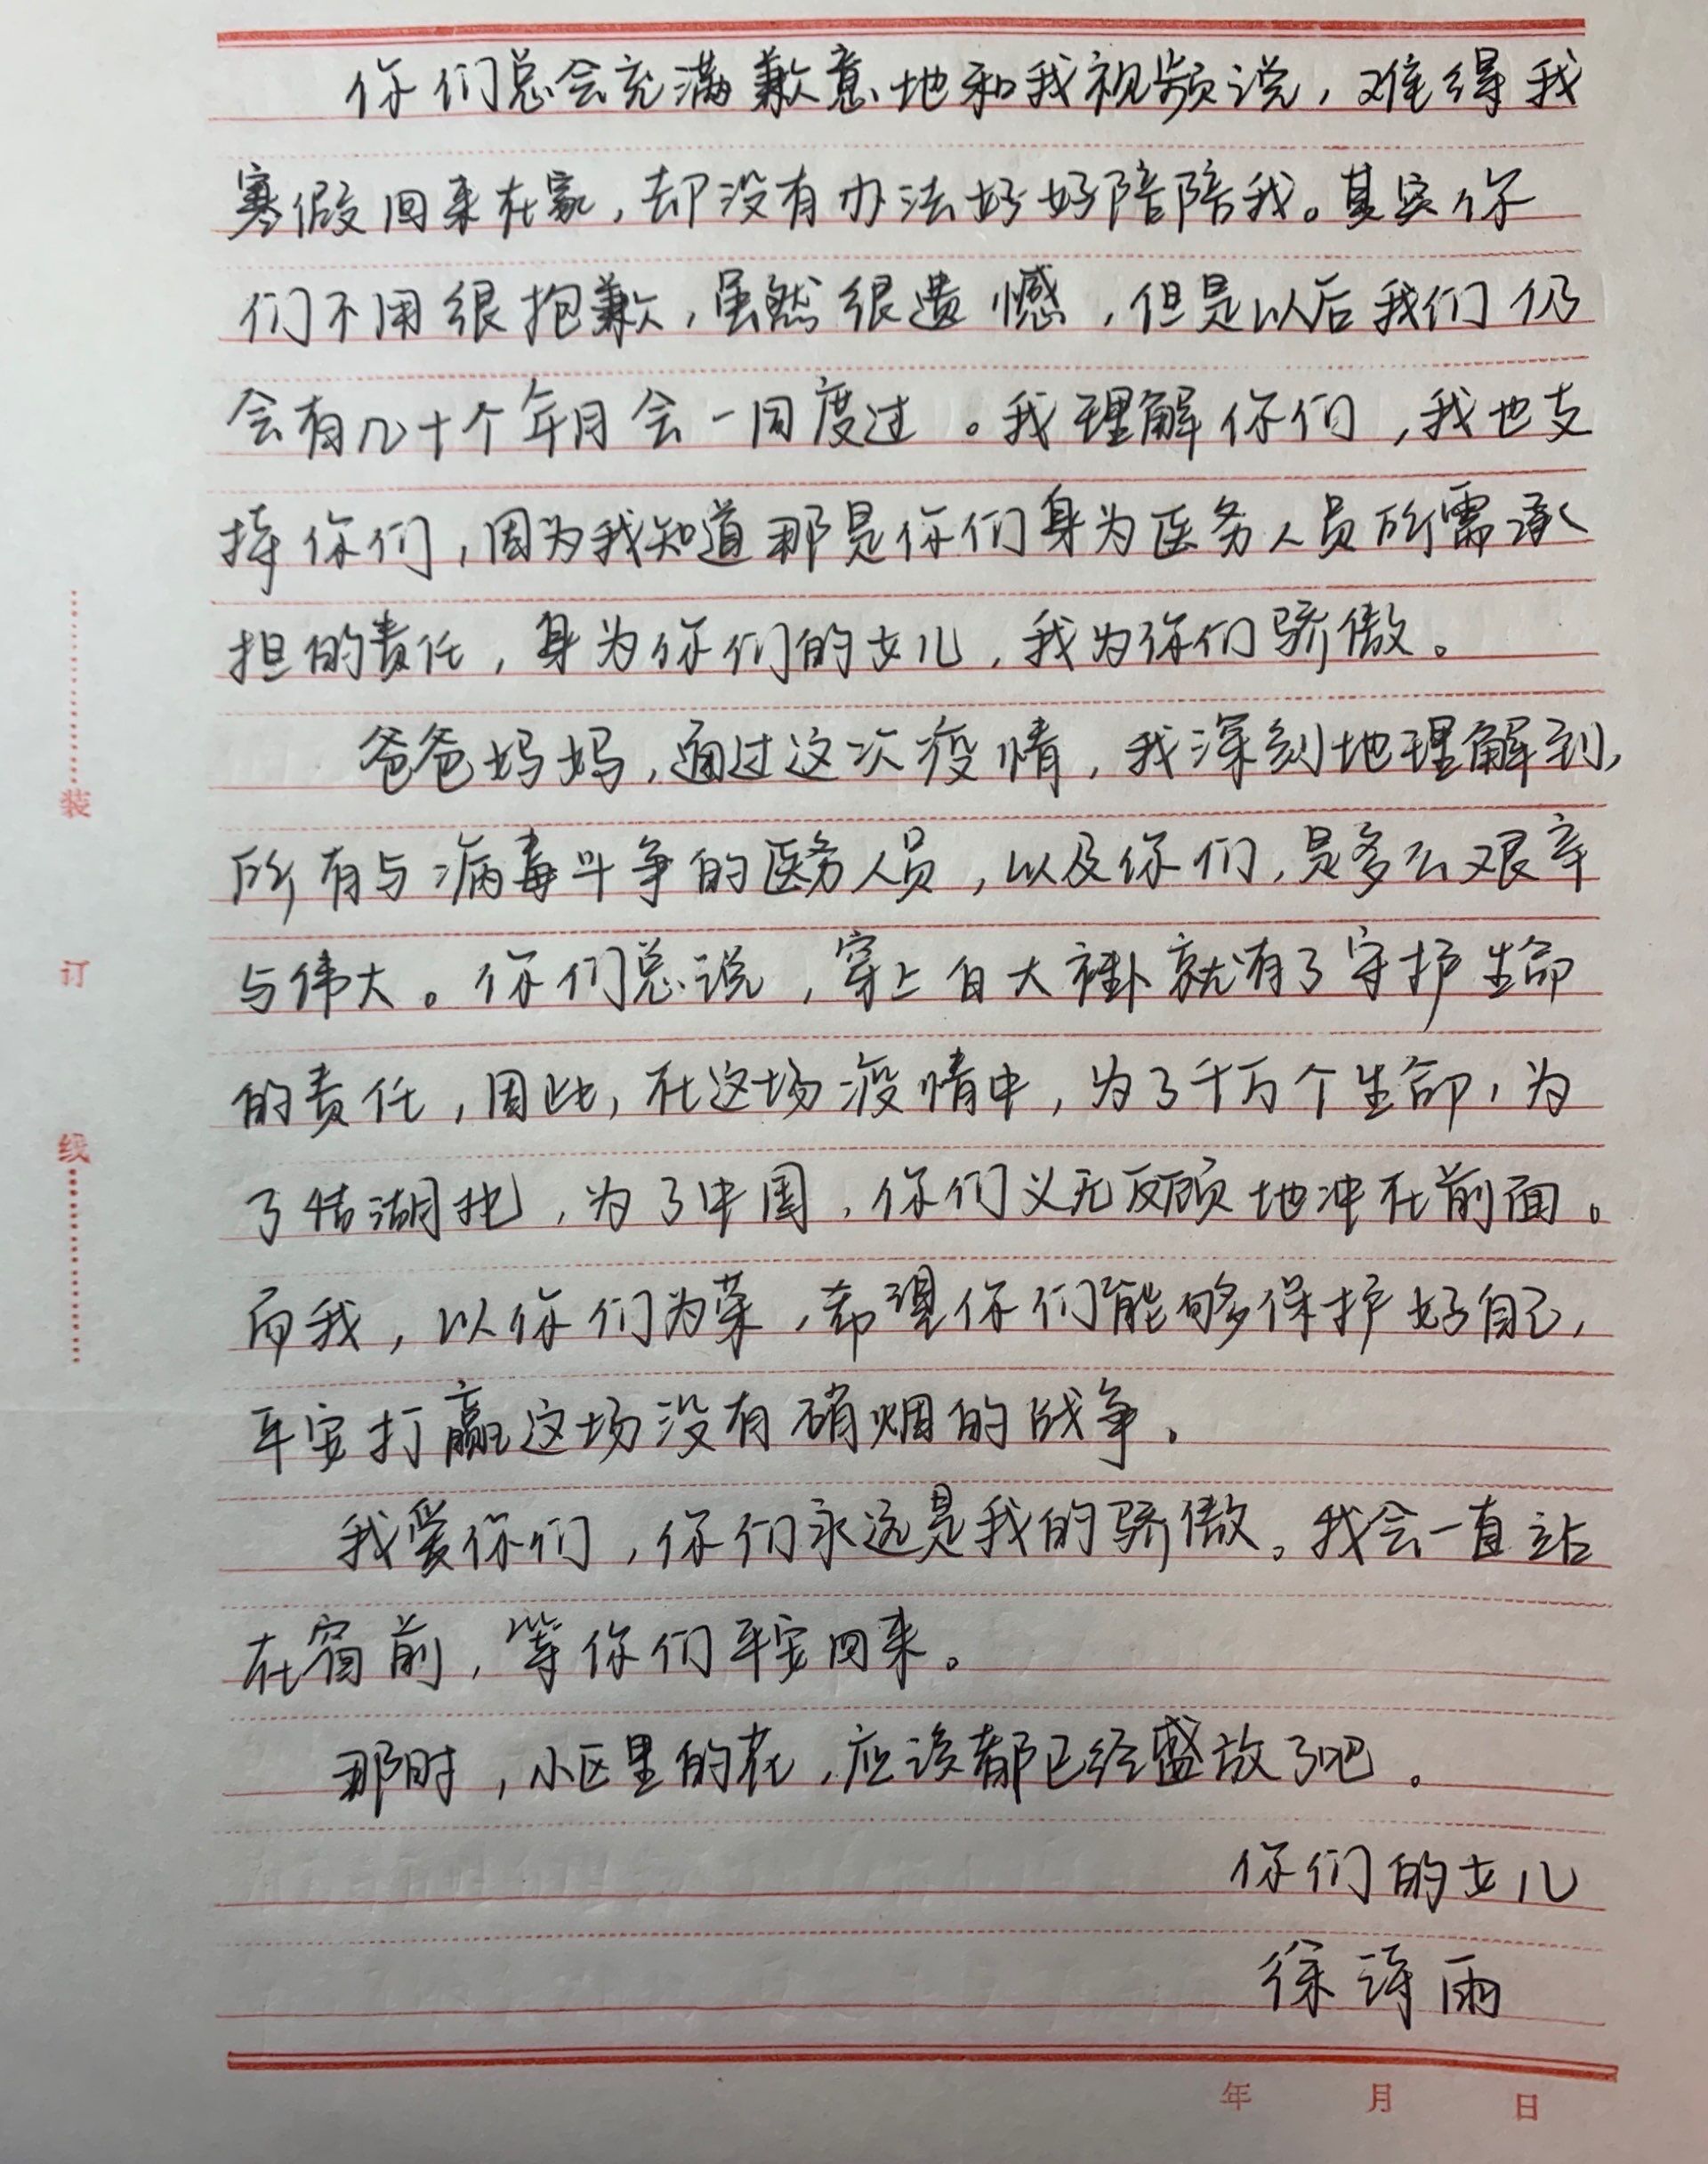 你们总会充满歉意地和我视频说，难得我
寒假回来在家，却没有办法好好陪陪我。其实你
们不用很抱歉，虽然很遗憾，但是以后我们仍
会有几十个年月会一同度过。我理解你们，我也支
持你们，因为我知道那是你们身为医务人员所需承
担的责任，身为你们的女儿，我为你们骄傲。
爸爸妈妈，通过这次疫情，我深刻地理解到，
所有与病毒斗争的医务人员，以及你们，是多么艰辛
与伟大。你们总说，穿上白大褂就有了守护生命
的责任，因此，在这场疫情中，为了千万个生命，为
了情湖北，为了中国，你们义无反顾地冲在前面。
而我，以你们为荣，希望你们能够保护好自己，
平安打赢这场没有硝烟的战争。
我爱你们，你们永远是我的骄傲。我会一直站
在窗前，等你们平安回来。
那时，小区里的花，应该都已经盛放了吧。
你们的女儿
徐诗雨
装
订
线
年 月 日